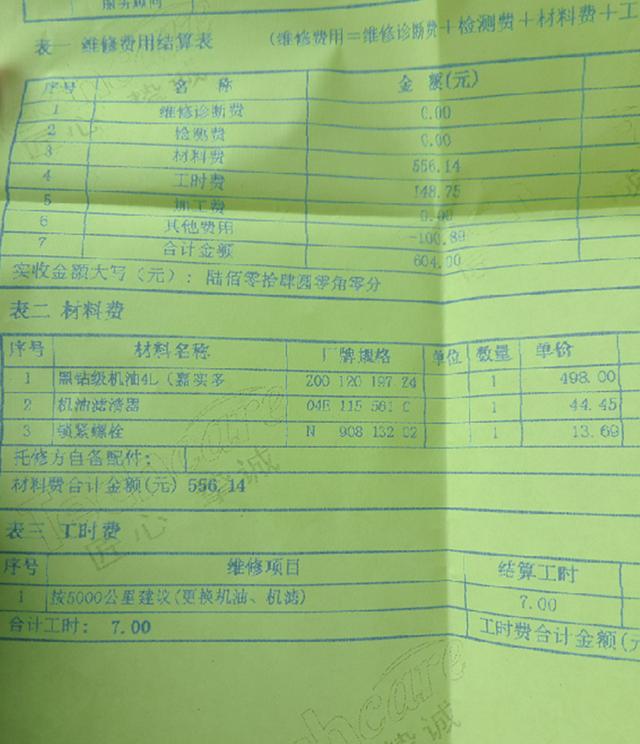 服务顾问
表一 维修费用结算表 (维修费用=维修诊断费+检测费+材料费+工
序号 名 称 金 额(元)
1 维修诊断费 0.00
2 检测费 0.00
3 材料费 556.14
4 工时费 148.75
5 加工费 0.00
6 其他费用 -100.89
7 合计金额 604.00
实收金额大写（元）: 陆佰零拾肆圆零角零分
表二 材料费
序号 材料名称 厂牌规格 单位 数量 单价
1 黑钻级机油4L（嘉实多 Z00 120 197 Z4 1 498.00
2 机油滤清器 04E 115 561 C 1 44.45
3 锁紧螺栓 N 908 132 02 1 13.69
托修方自备配件:
材料费合计金额(元) 556.14
表三 工时费
序号 维修项目 结算工时
1 按5000公里建议(更换机油、机滤) 7.00
合计工时: 7.00 工时费合计金额(元
匠心 挚诚